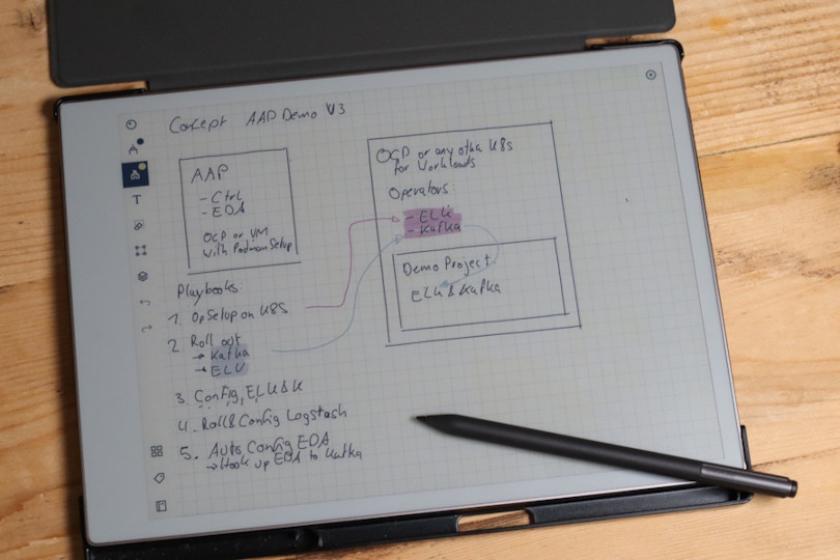 Concept AAP Demo V3
AAP
- Ctrl
- EDA
OCP or VM
with Podman Setup
OCP or any otha K8s
for Workloads
Operators:
- ELK
- Kafka
Demo Project
ELK & Kafka
Playbooks:
1. Op Setup on K8S
2. Roll out
→ Kafka
→ ELK
3. Config, ELK & K
4. Roll & Config Logstash
5. Auto Config EDA
→ Hook up EDA to Kafka
T